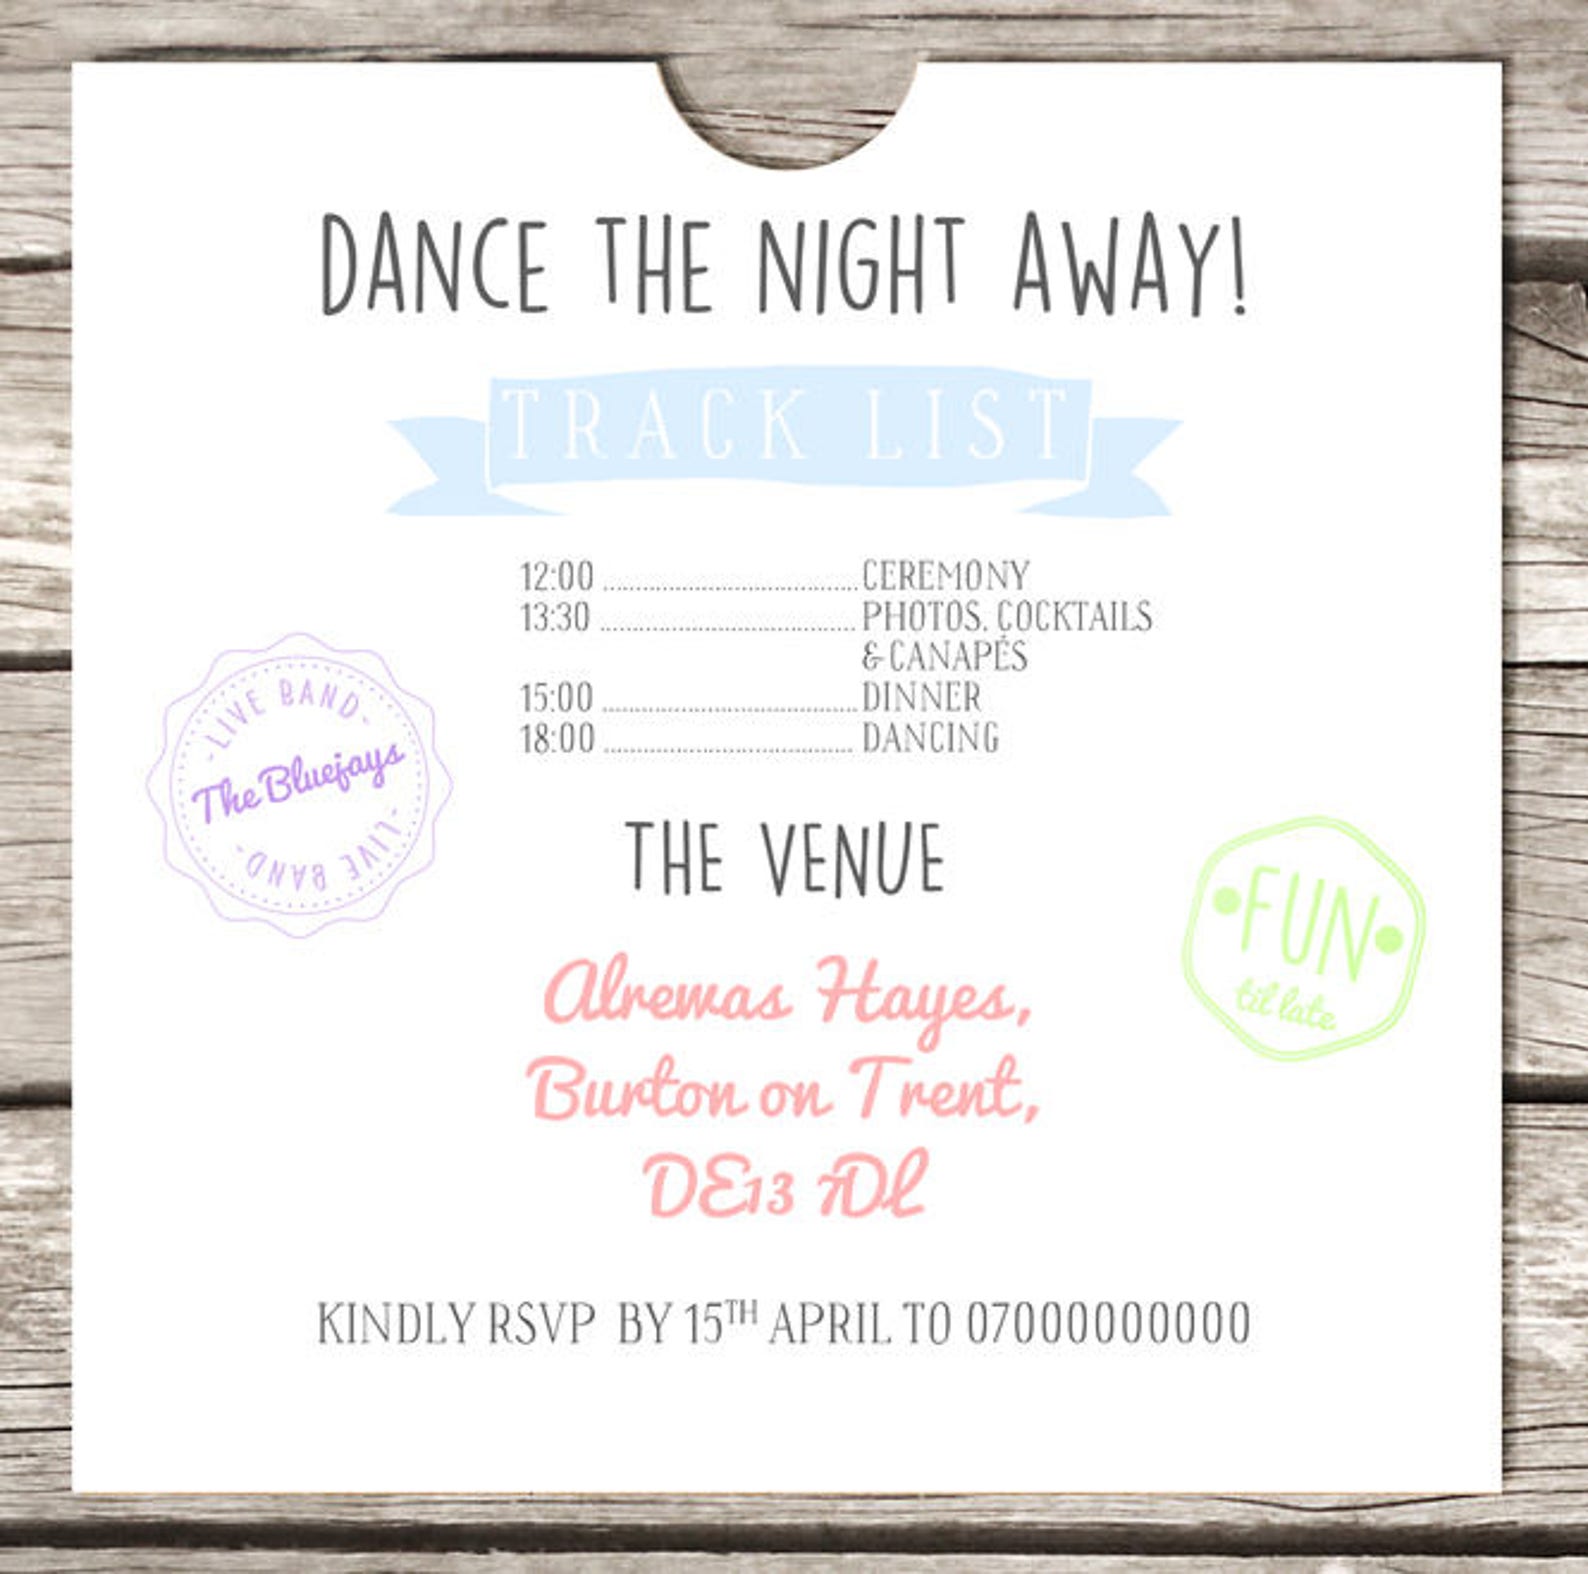 DANCE THE NIGHT AWAY!
TRACK LIST
12:00 ........................................ CEREMONY
13:30 ........................................ PHOTOS, COCKTAILS
& CANAPÉS
15:00 ........................................ DINNER
18:00 ........................................ DANCING
-LIVE BAND-
The Bluejays
-LIVE BAND-
THE VENUE
•FUN•
til late
Alrewas Hayes,
Burton on Trent,
DE13 7DL
KINDLY RSVP BY 15TH APRIL TO 07000000000